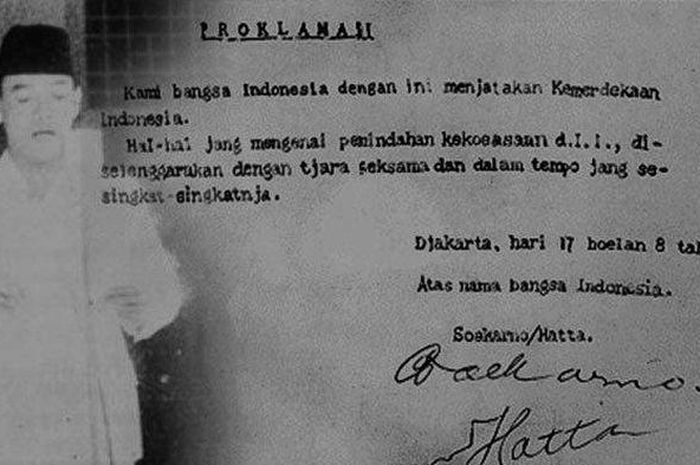 PROKLAMASI
Kami bangsa Indonesia dengan ini menjatakan Kemerdekaan
Indonesia.
Hal-hal jang mengenai pemindahan kekoeasaan d.l.l., di-
selenggarakan dengan tjara seksama dan dalam tempo jang se-
singkat-singkatnja.
Djakarta, hari 17 boelan 8 tah
Atas nama bangsa Indonesia.
Soekarno/Hatta.
Soekarno.
Hatta